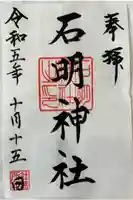 奉拝
石明神社
令和五年 十月十五